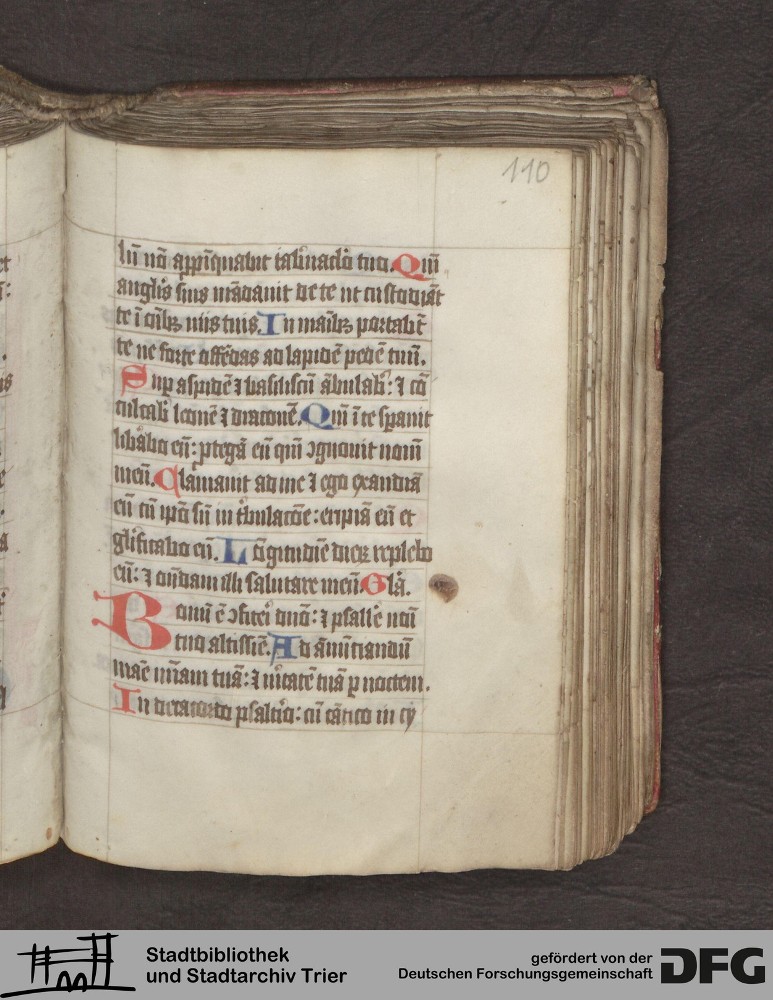 110
lū nō app̄īquabit tab̄nac̄lo tuo. Qm̄
angl̄is suis mādauit de te ut custodiāt
te ī oīb; uiis tuis. In maīb; portab̄t
te ne forte offēdas ad lapidē pedē tuū.
Sup aspidē ⁊ basiliscū ābulab̄: ⁊ cō
culcab̄ leonē ⁊ draconē. Qm̄ ī te sp̄auit
lib̄abo eū: p̄tegā eū qm̄ ↄgnouit nom̄
meū. Clamauit ad me ⁊ ego exaudiā
eū cū ip̄o sū in t̄bulacōe: eripiā eū et
gl̄ificabo eū. Lōgitudīe dieꝝ replebo
eū: ⁊ oñdam illi salutare meū. Gl̄a.
Bonū ē ↄfiteī dn̄o: ⁊ psall̄e noī
tuo altissīe. Ad ānūtiandū
maē mīam tuā: ⁊ uītatē tuā p̄ noctem.
In decacordo psalt̄io: cū cātico in cy
Stadtbibliothek
und Stadtarchiv Trier
gefördert von der
Deutschen Forschungsgemeinschaft
DFG